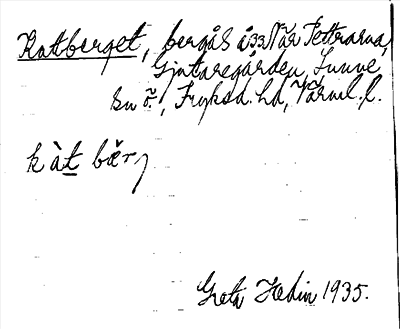 Kattberget, bergås i 33 när Pettrarna,
Gjutaregården, Sunne
sn ö., Fryksd. hd, Värml. l.
kàt bær
Greta Hedin 1935.